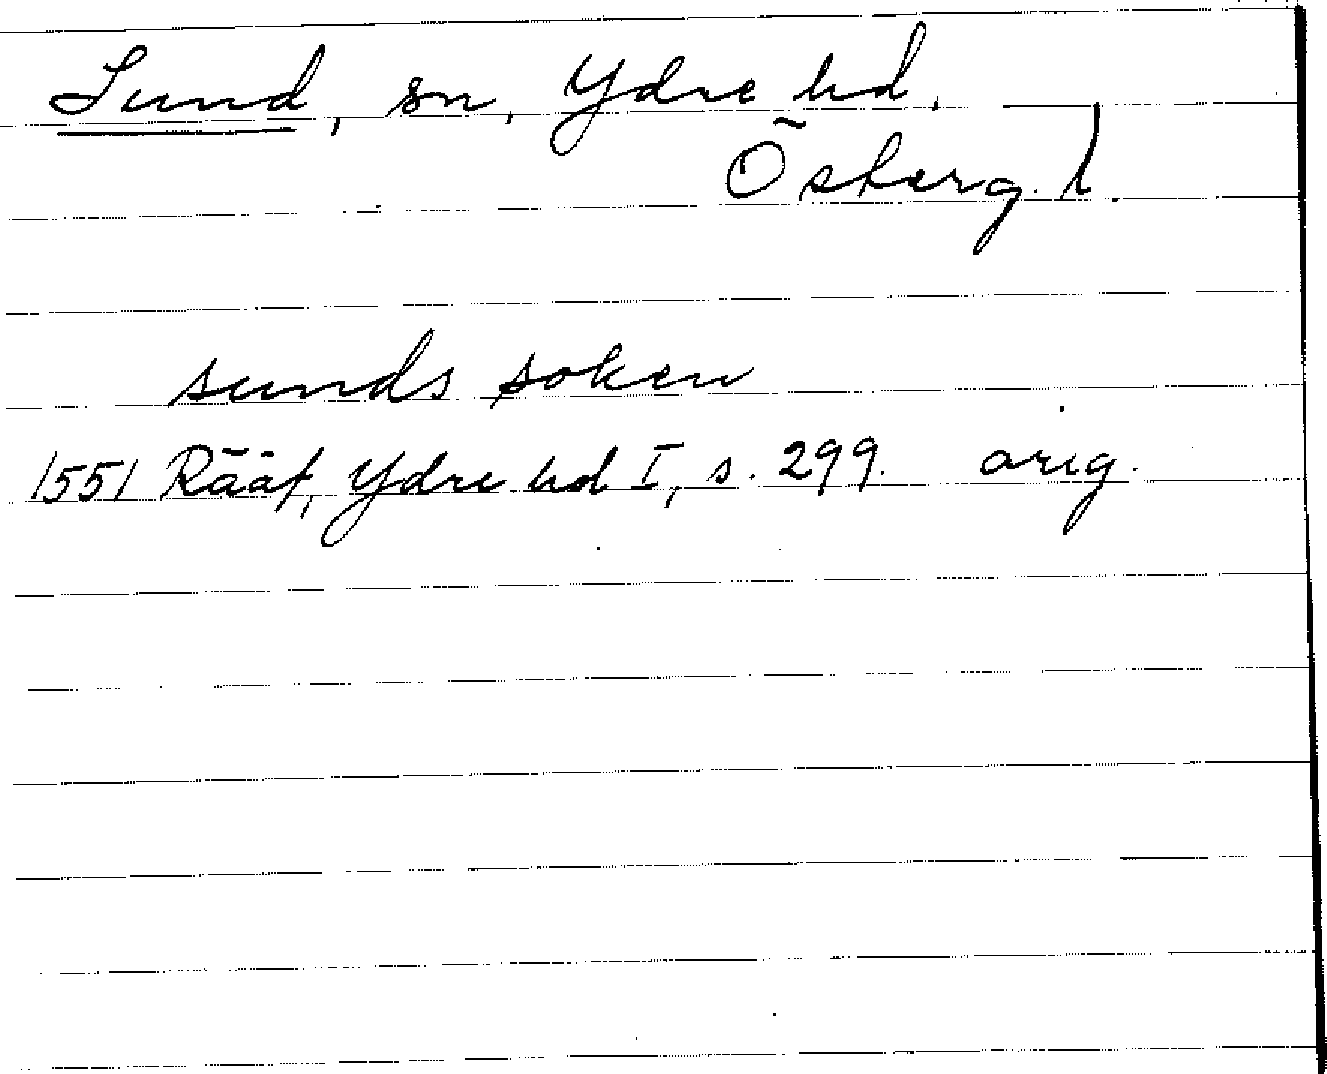 Sund, sn, Ydre hd.
Österg. l.
sunds soken
1551 Rääf, Ydre hd I, s. 299. orig.